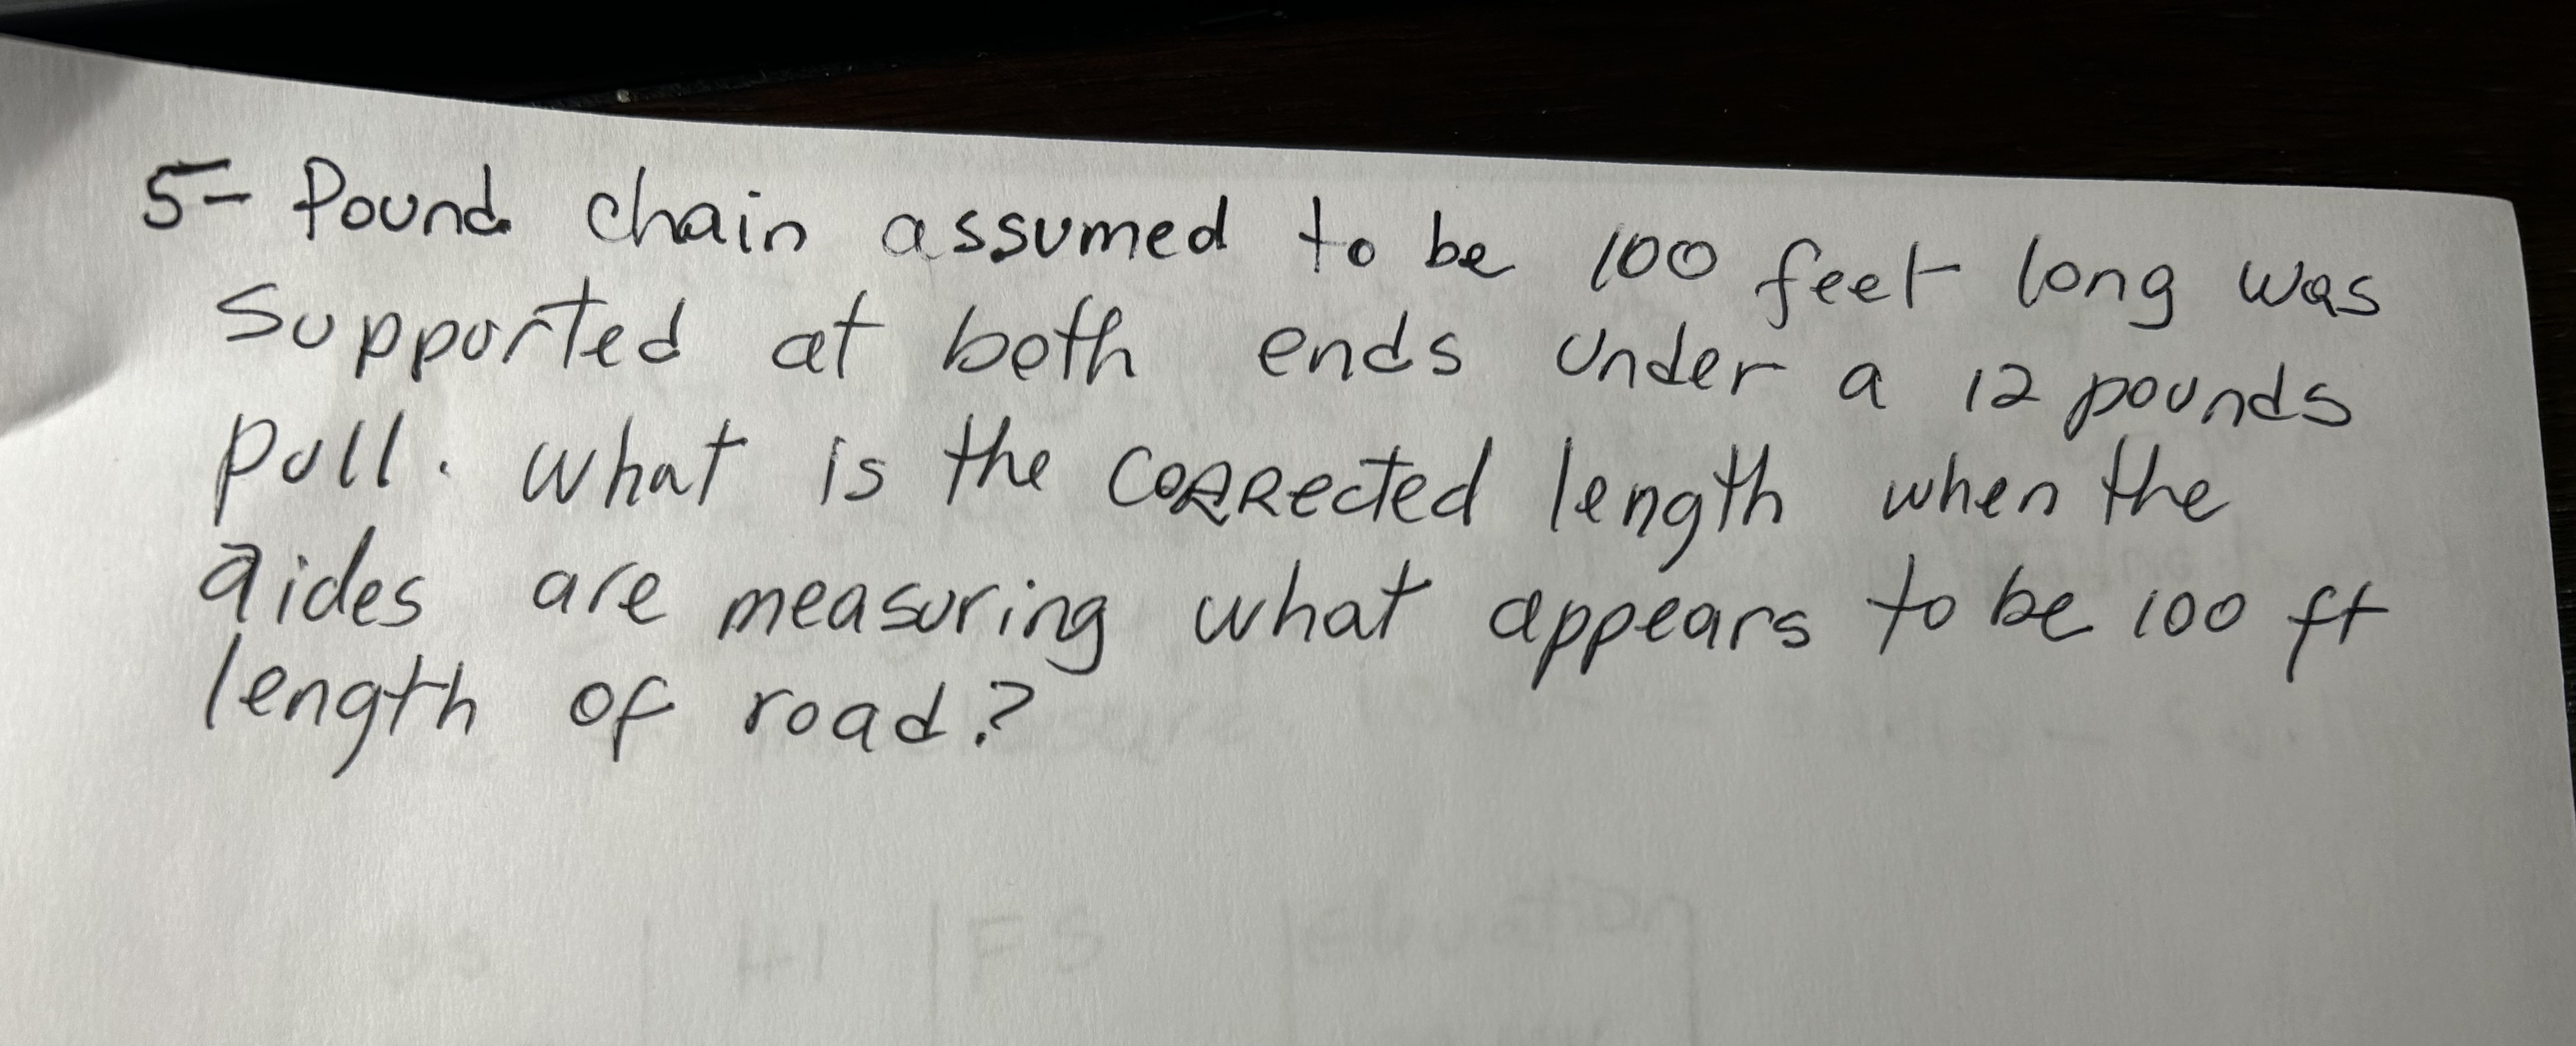 5- Pound chain assumed to be 100 feet long was
supported at both ends under a 12 pounds
pull. What is the CORRected length when the
aides are measuring what appears to be 100 ft
length of road?
HI FS Elevation